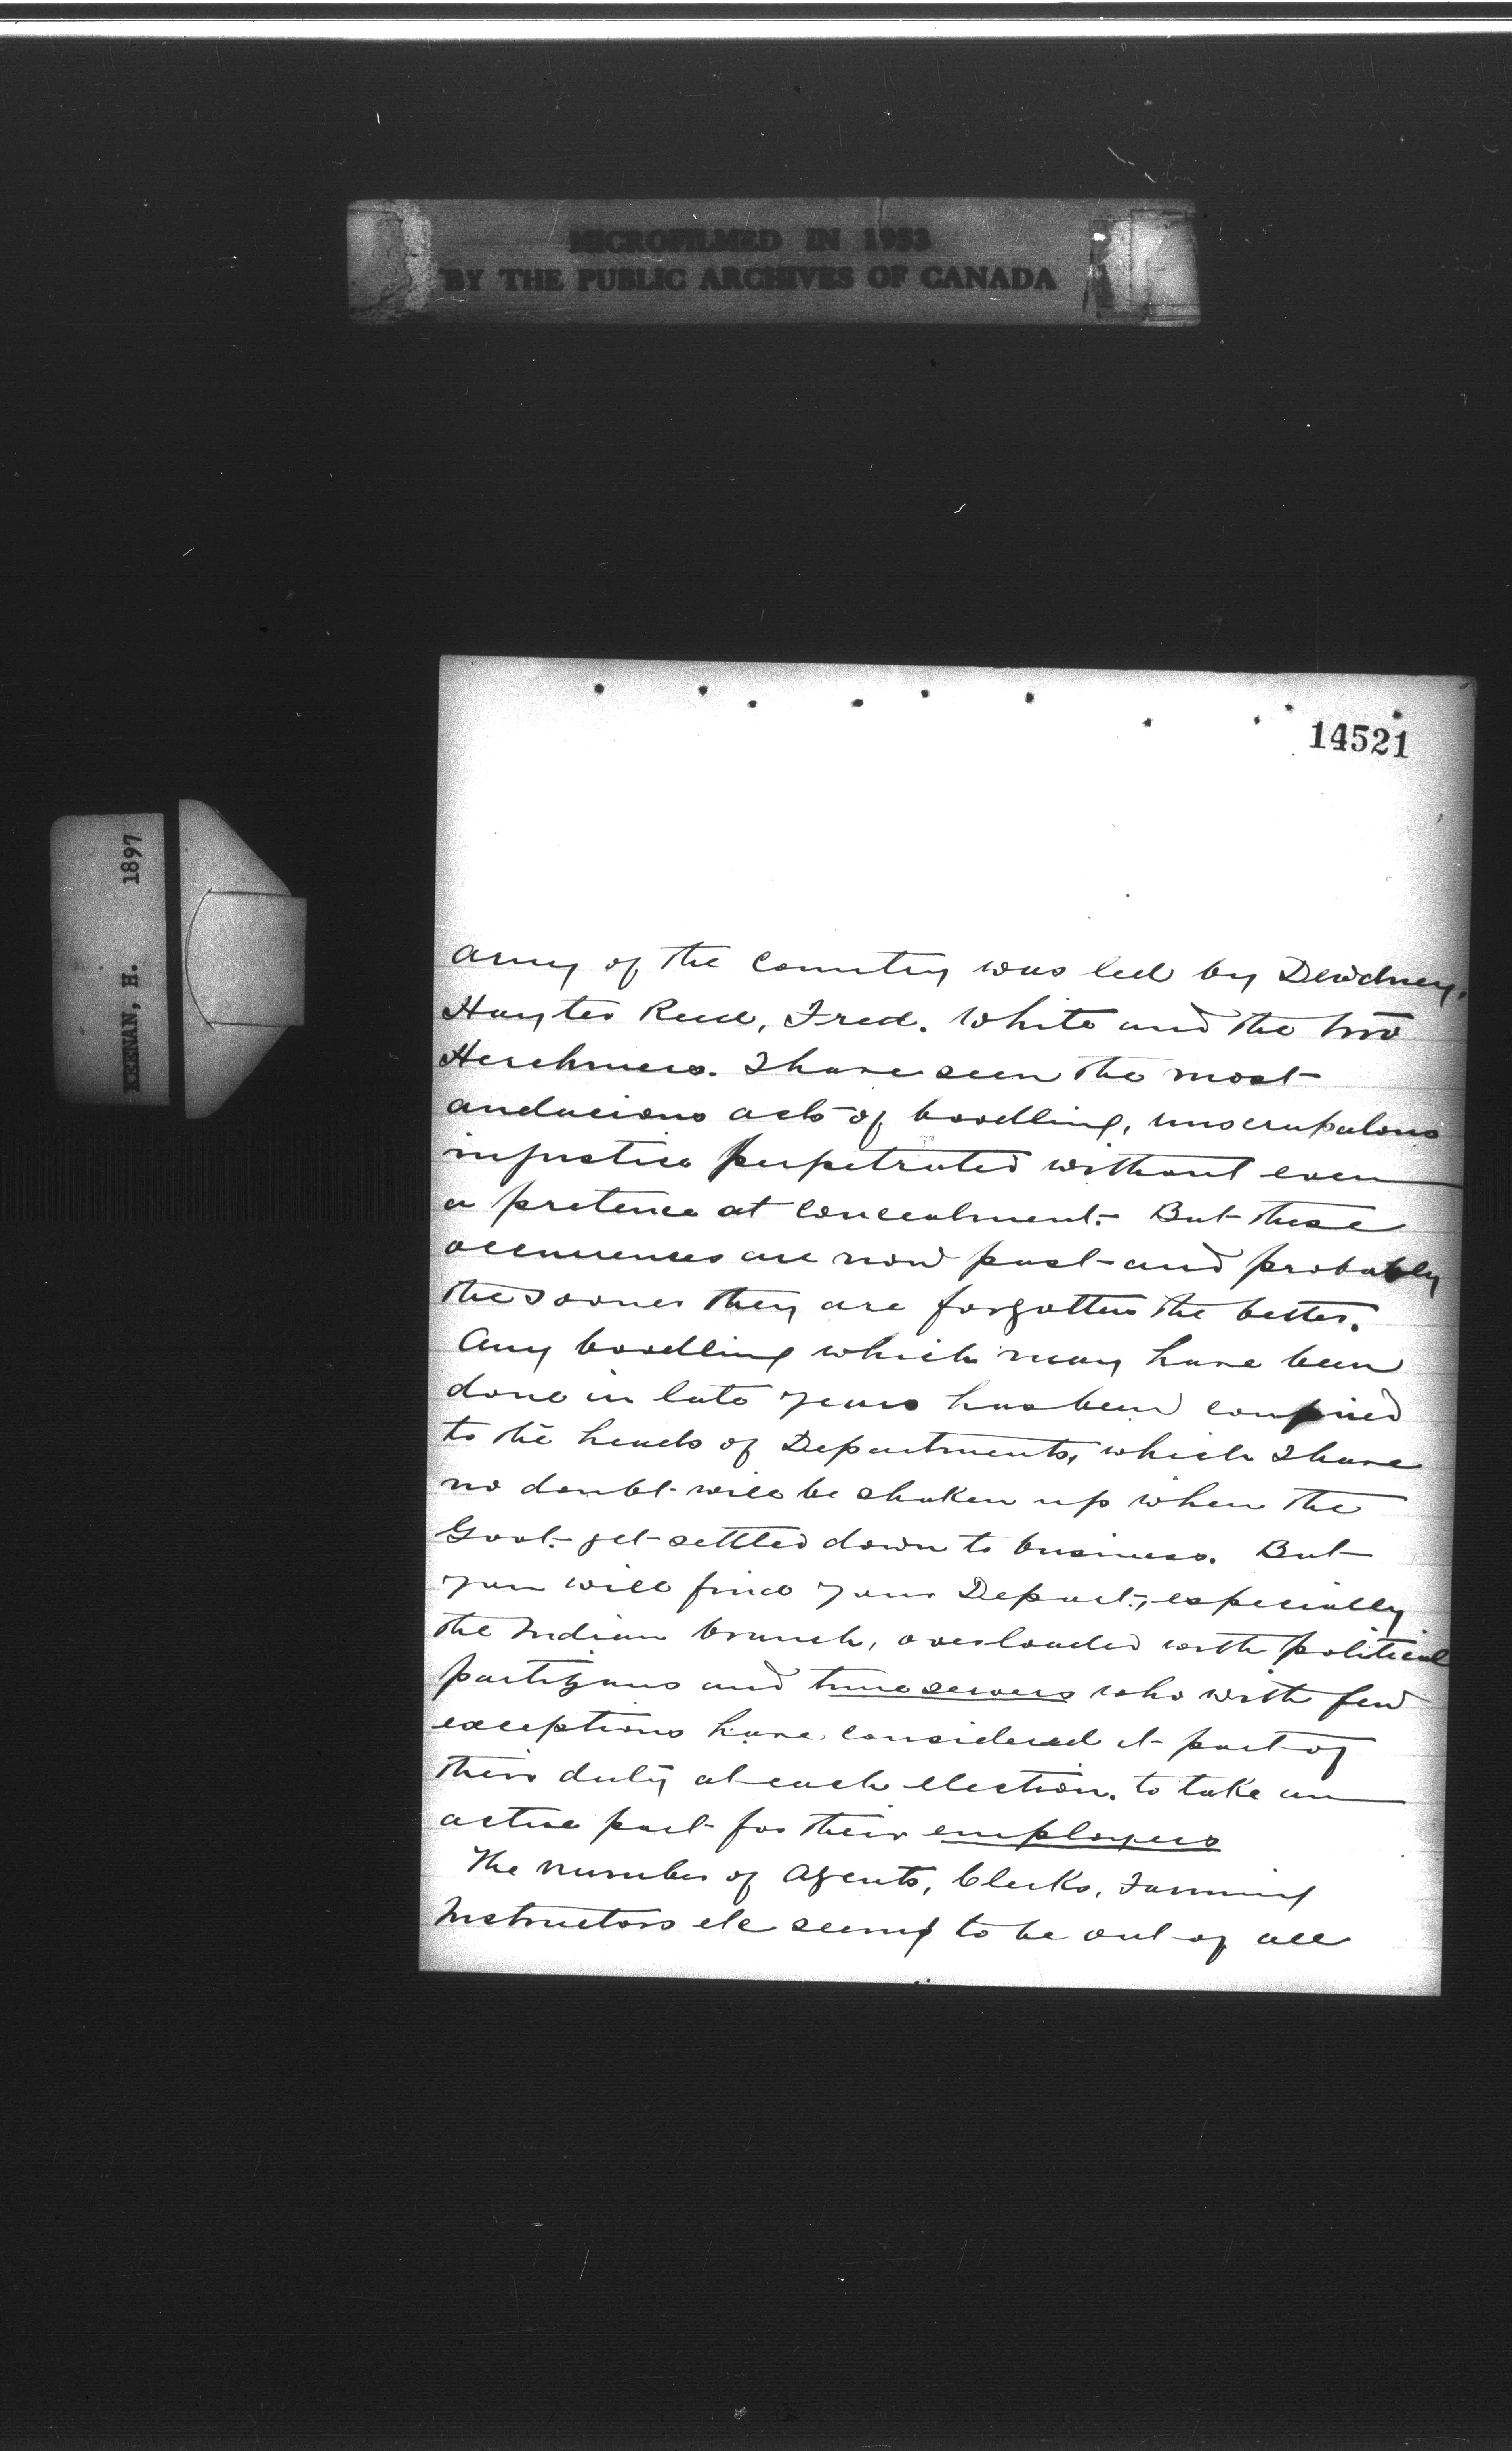 MICROFILMED IN 1953
BY THE PUBLIC ARCHIVES OF CANADA
KEENAN, H. 1897
14521
army of the country was led by Dewdney.
Hayter Reed, Fred. White and the two
Herchmers. I have seen the most
audacious acts of boodling, unscrupulous
injustice perpetrated without even
a pretence at concealment. But these
occurrences are now past and probably
the sooner they are forgotten the better.
Any boodling which may have been
done in late years has been confined
to the heads of Departments, which I have
no doubt will be shaken up when the
Govt. get settled down to business. But
you will find your Depart., especially
the Indian branch, overloaded with political
partizans and time servers who with few
exceptions have considered it part of
their duty at each election. to take an
active part for their employers
The number of Agents, Clerks, Farming
Instructors etc seems to be out of all